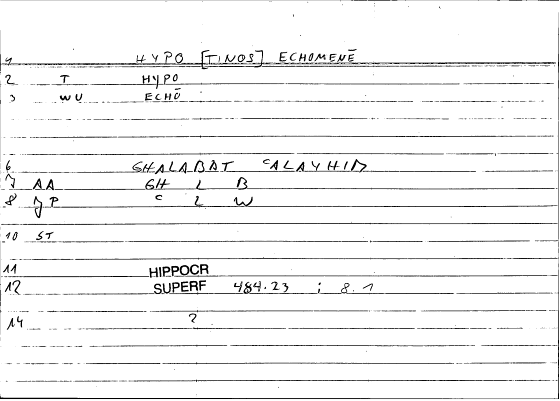 1 HYPO [TINOS] ECHOMENĒ
2 T HYPO
3 WU ECHŌ
6 GHALABAT ʿALAYHIĀ
7 AA GH L B
8 JP ʿ L W
10 ST
11 HIPPOCR
12 SUPERF 484.23 ; 8.1
14 2